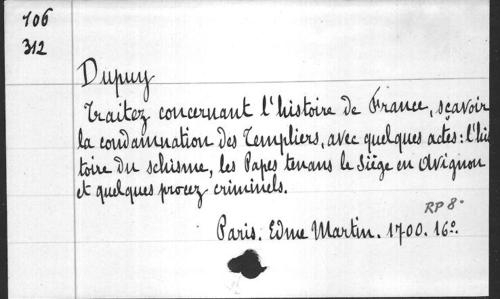 106
312
Dupuy
Traitez concernant l'histoire de France, sçavoir
la condamnation des Templiers, avec quelques actes: l'his
toire du schisme, les Papes tenans le Siège en Avignon
et quelques procez criminels.
RP 8°
Paris. Edme Martin. 1700. 16°.